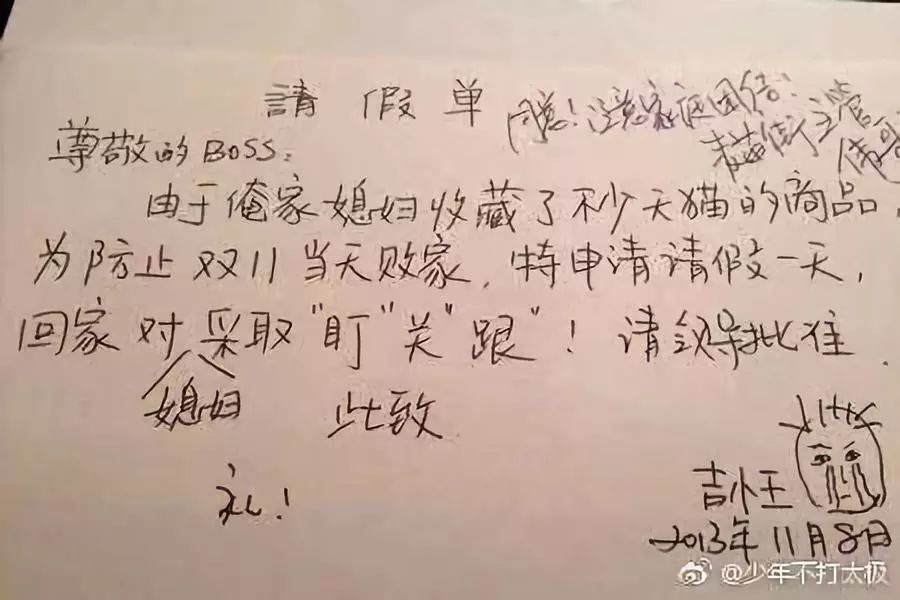 請假单
同意！注意家庭团结！
街主管
伟哥
尊敬的BOSS：
由于俺家媳妇收藏了不少天猫的商品，
为防止双11当天败家，特申请请假一天，
回家对媳妇采取"盯"关"跟"！请领导批准．
此致
礼！
吉小王
2013年11月8日
@少年不打太极